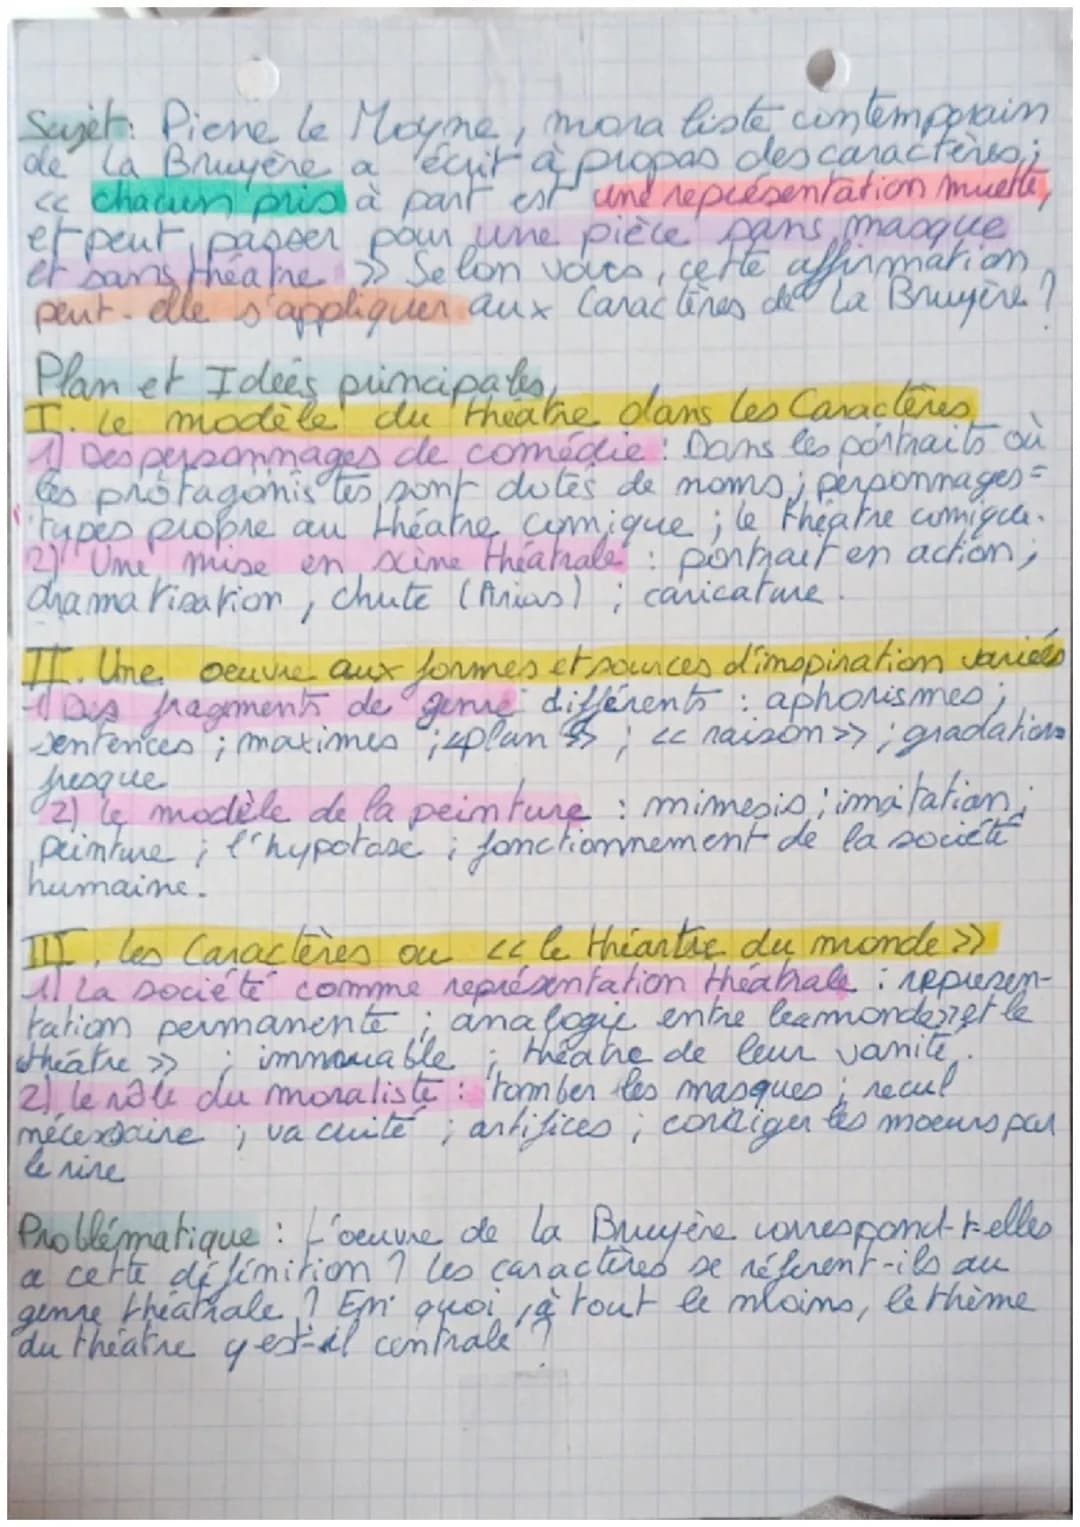 Sujet: Piene le Moyne, mora liste contemporain
de La Bruyère a écrit à propos des caractères;
<< chacun pris à part est une représentation muette,
et peut passer pour une pièce sans masque
et sans théatre >> Selon vous, cette affirmation
peut-elle s'appliquer aux Caractères de La Bruyère ?
Plan et Idées principales,
I. Le modèle du théatre dans les Caractères
1) Des personnages de comédie : Dans les portraits où
les protagonistes sont dotés de noms; personnages=
types propre au théatre comique ; le théatre comique.
2) Une mise en scène théatrale : portrait en action;
dramatisation, chute (Arias) ; caricature.
II. Une oeuvre aux formes et sources d'inspiration variées
1) Des fragments de genre différents : aphorismes;
sentences ; maximes ; <<plan >> ; << raison >> ; gradations
fresque
2) Le modèle de la peinture : mimesis; imitation;
peinture ; l'hypotase ; fonctionnement de la société
humaine.
III. Les Caractères ou << le théantre du monde >>
1) La société comme représentation théatrale : représen-
tation permanente ; analogie entre le<<monde>> et le
théatre >> ; immuable ; théatre de leur vanité.
2) Le rôle du moraliste : tomber les masques ; recul
nécessaire ; vacuité ; artifices ; corriger les moeurs par
le rire
Problématique : L'oeuvre de La Bruyère correspond-t-elles
a cette définition ? Les caractères se réferent-ils au
genre théatrale ? En quoi, à tout le moins, le thème
du théatre y est-il centrale ?